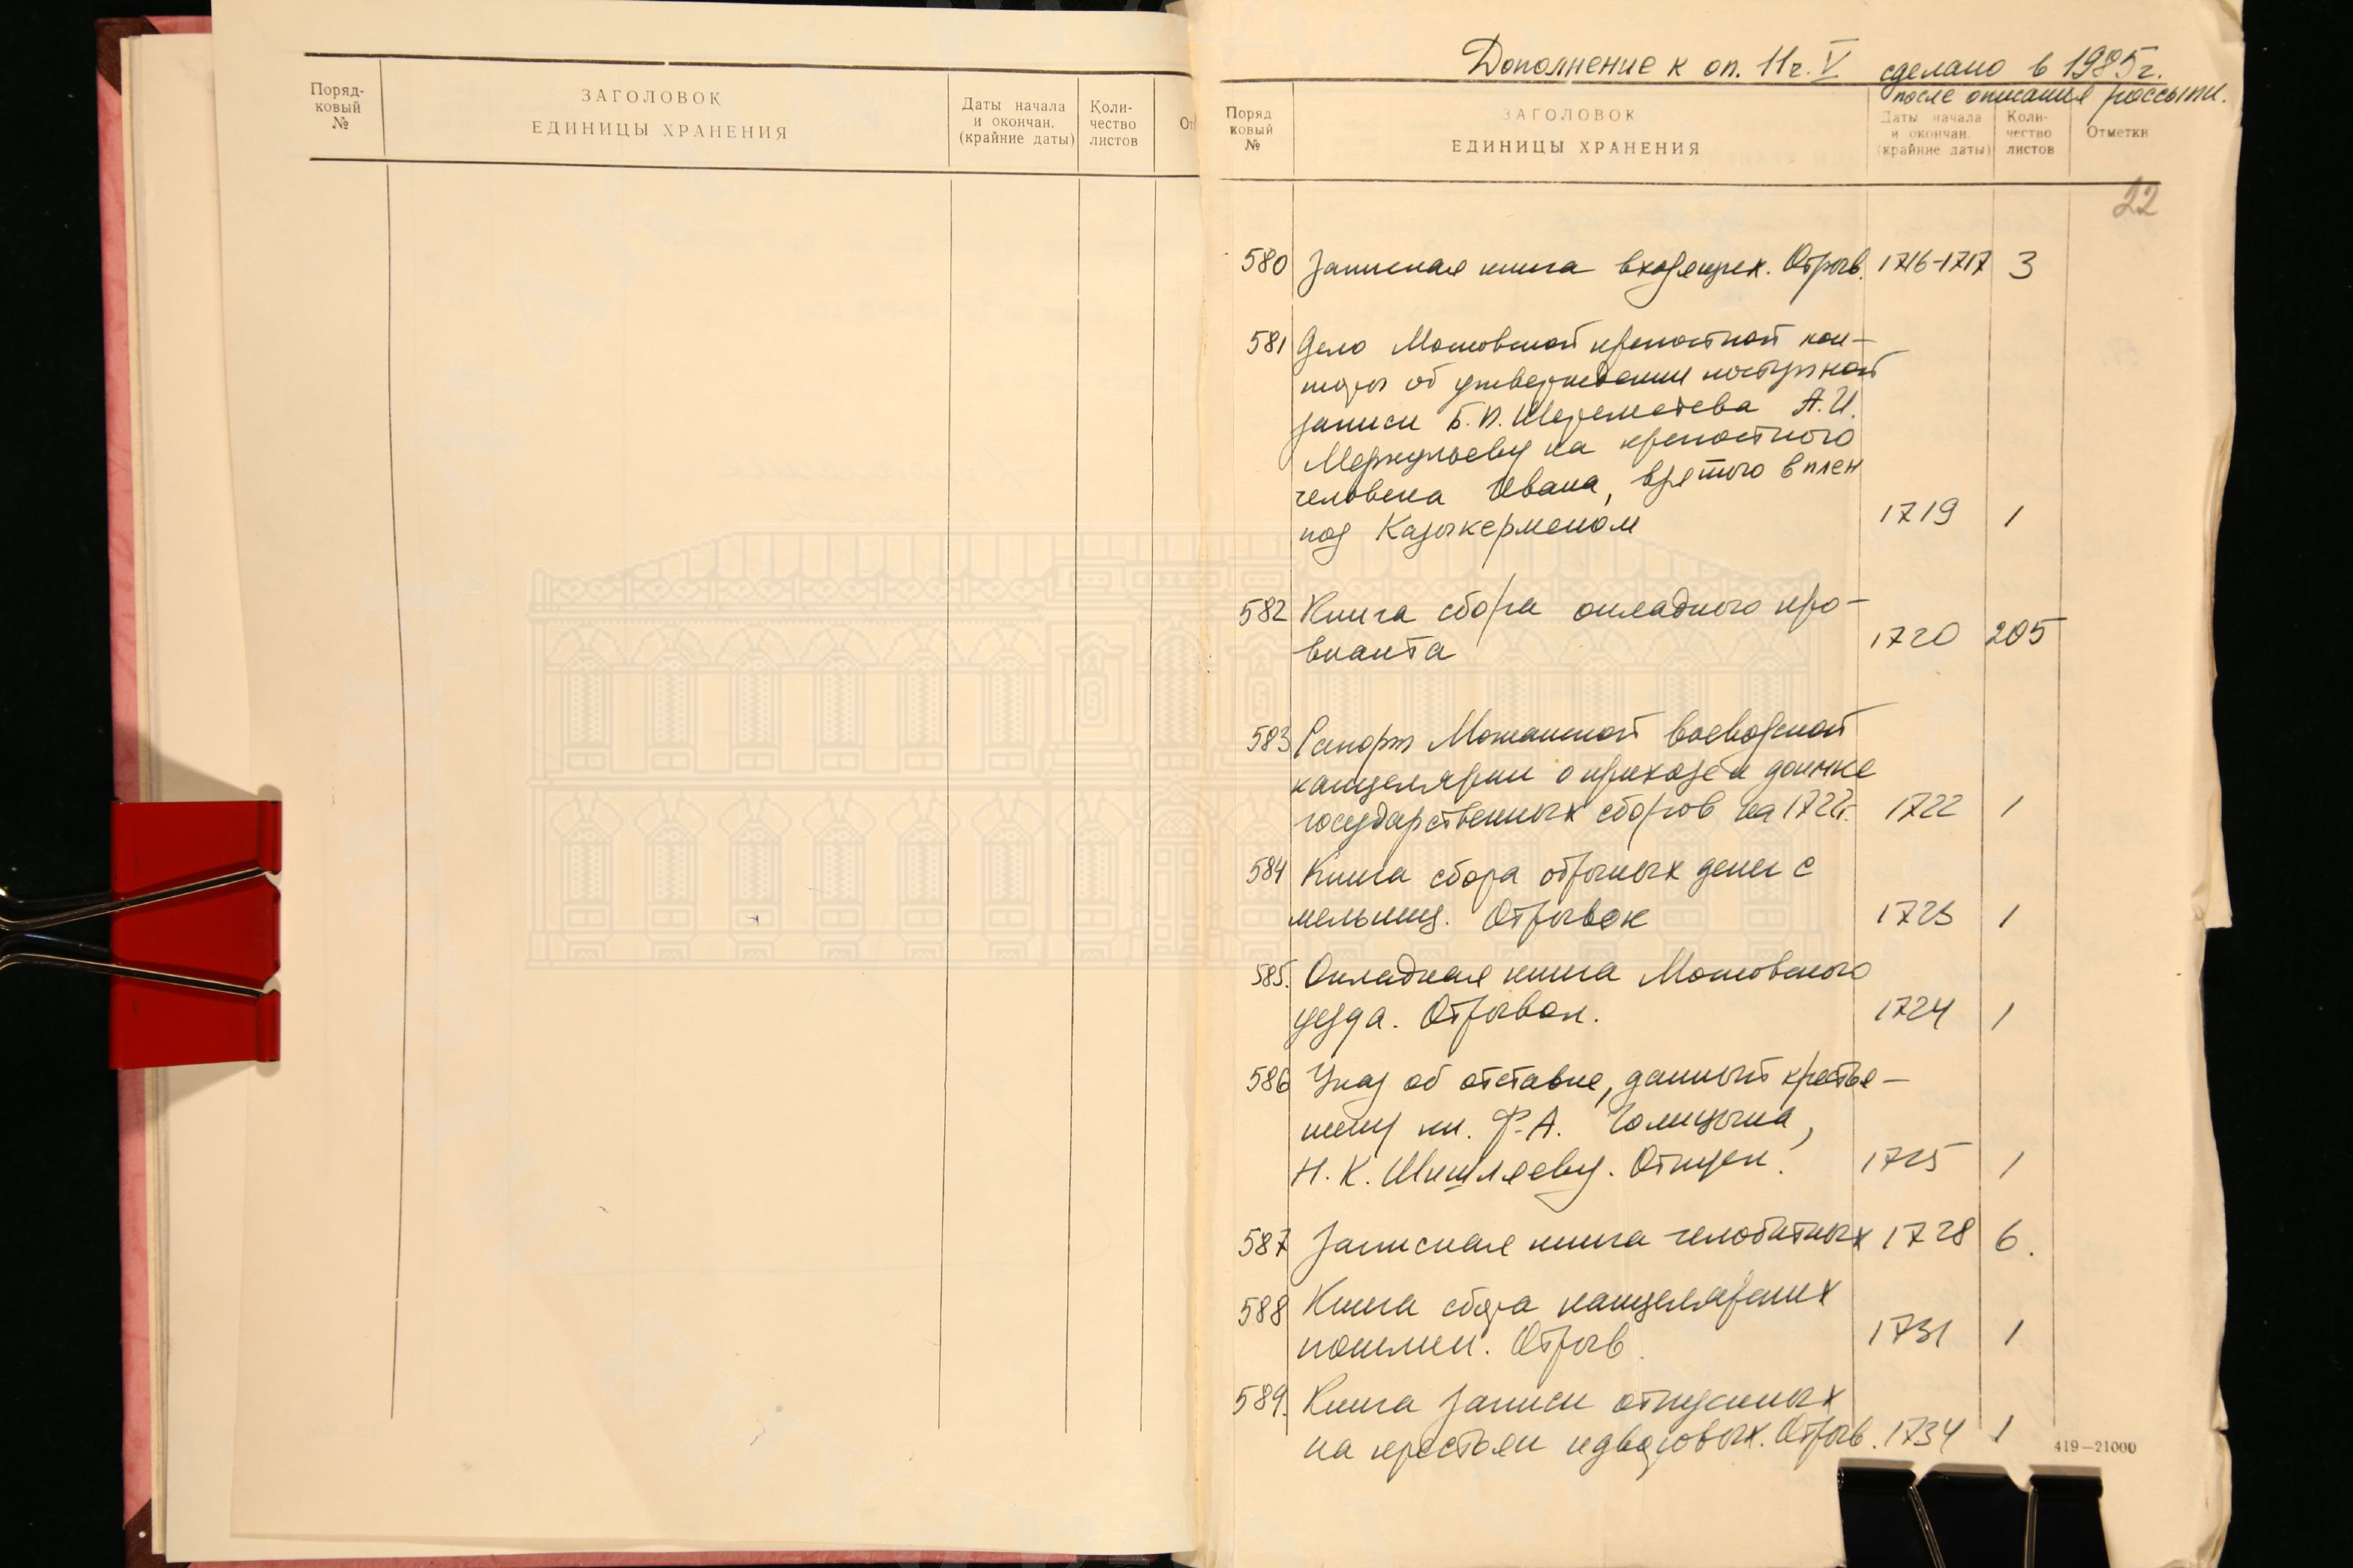 Поряд-
ковый
№
ЗАГОЛОВОК
ЕДИНИЦЫ ХРАНЕНИЯ
Даты начала
и окончан.
(крайние даты)
Коли-
чество
листов
От
Дополнение к оп. 11 ч. V сделано в 1985 г.
после описания россыпи.
Поряд
ковый
№
ЗАГОЛОВОК
ЕДИНИЦЫ ХРАНЕНИЯ
Даты начала
и окончан.
(крайние даты)
Коли-
чество
листов
Отметки
22
580 Записная книга входящих. Отрыв. 1716-1717 3
581 Дело Московской крепостной кон-
торы об утверждении поступной
записи Б.П. Шереметева А.И.
Меркульеву на крепостного
человека Ивана, взятого в плен
под Казыкерменом 1719 1
582 Книга сбора окладного про-
вианта 1720 205
583 Рапорт Можайской воеводской
канцелярии о приходе и доимке
государственных сборов на 1722г. 1722 1
584 Книга сбора оброчных денег с
мельниц. Отрывок 1723 1
585. Окладная книга Московского
уезда. Отрывок. 1724 1
586 Указ об отставке, данный крестья-
нину кн. Ф.А. Голицына,
Н.К. Шишляеву. Отпуск. 1725 1
587 Записная книга челобитных 1728 6.
588 Книга сбора канцелярских
пошлин. Отрыв. 1731 1
589. Книга записи отпускных
на крестьян и дворовых. Отрыв. 1734 1
419—21000